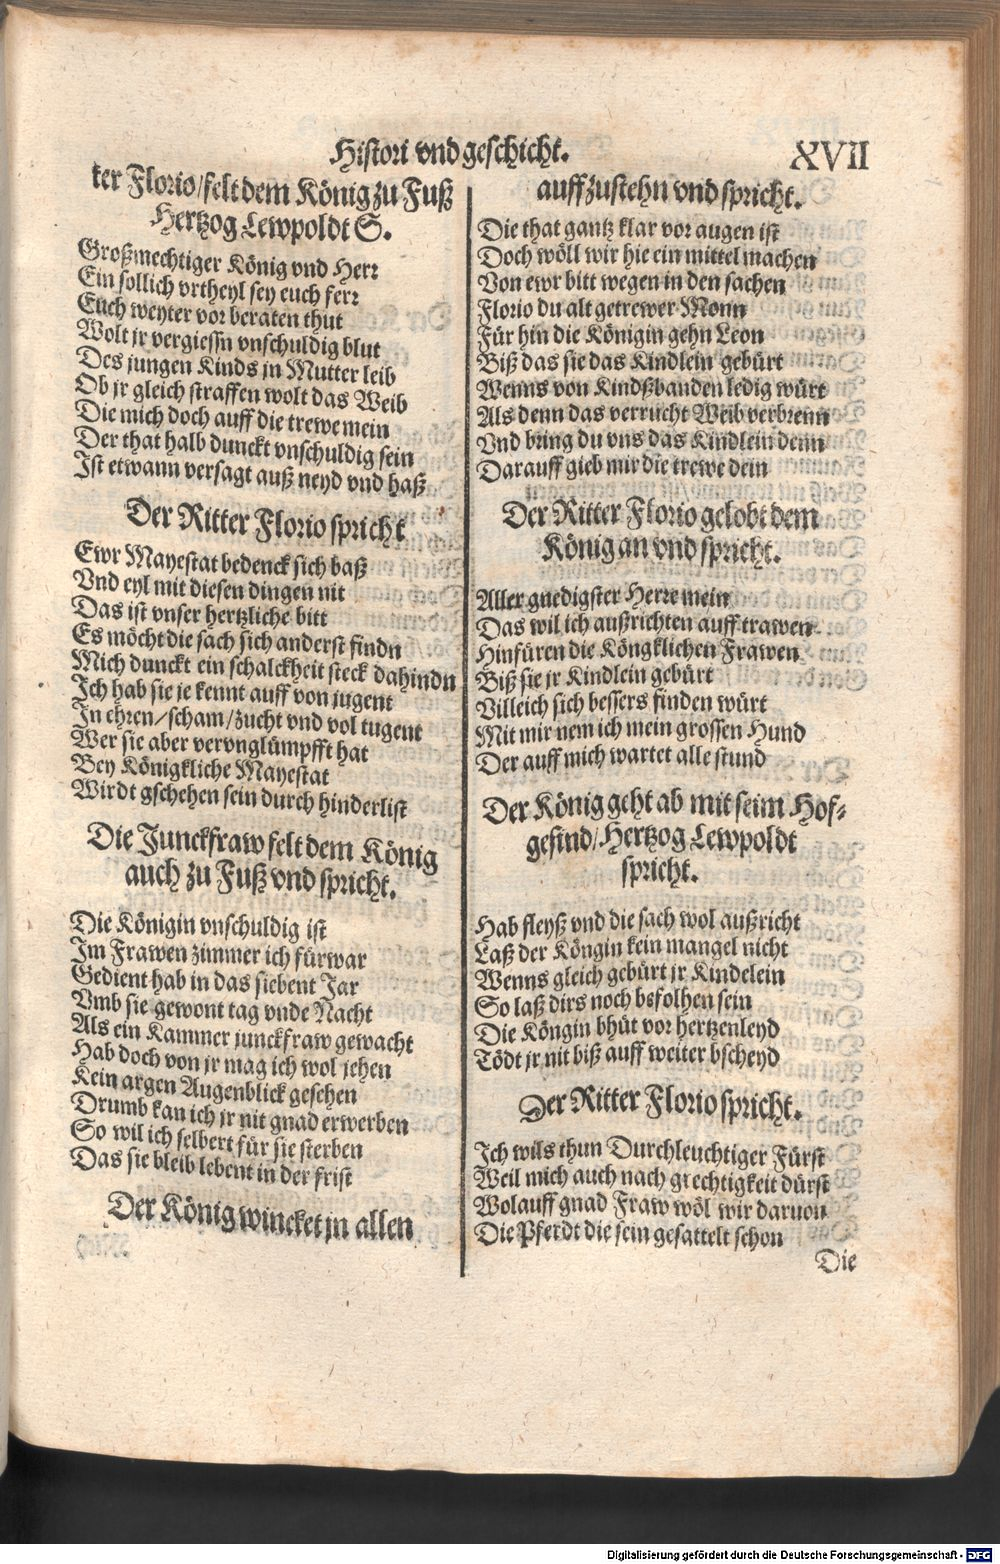 Histori vnd geschicht.
XVII
ter Florio/felt dem König zu Fuß
Hertzog Lewpoldt S.
Großmechtiger König vnd Herr
Ein sollich vrtheyl sey euch ferr
Euch weyter vor beraten thut
Wolt jr vergiessn vnschuldig blut
Des jungen Kinds in Mutter leib
Ob jr gleich straffen wolt das Weib
Die mich doch auff die trewe mein
Der that halb dunckt vnschuldig sein
Ist etwann versagt auß neyd vnd haß
Der Ritter Florio spricht
Ewr Mayestat bedenck sich baß
Vnd eyl mit diesen dingen nit
Das ist vnser hertzliche bitt
Es möcht die sach sich anderst findn
Mich dunckt ein schalckheit steck dahindn
Ich hab sie je kennt auff von jugent
In ehren/scham/zucht vnd vol tugent
Wer sie aber vervnglümpfft hat
Bey Königkliche Mayestat
Wirdt gschehen sein durch hinderlist
Die Junckfraw felt dem König
auch zu Fuß vnd spricht.
Die Königin vnschuldig ist
Im Frawen zimmer ich fürwar
Gedient hab in das siebent Jar
Vmb sie gewont tag vnde Nacht
Als ein Kammer junckfraw gewacht
Hab doch von jr mag ich wol jehen
Kein argen Augenblick gesehen
Drumb kan ich jr nit gnad erwerben
So wil ich selbert für sie sterben
Das sie bleib lebent in der frist
Der König wincket jn allen
auff zustehn vnd spricht.
Die that gantz klar vor augen ist
Doch wöll wir hie ein mittel machen
Von ewr bitt wegen in den sachen
Florio du alt getrewer Monn
Für hin die Königin gehn Leon
Biß das sie das Kindlein gebürt
Wenns von Kindßbanden ledig würt
Als denn das verrucht Weib verbrenn
Vnd bring du vns das Kindlein denn
Darauff gieb mir die trewe dein
Der Ritter Florio gelobt dem
König an vnd spricht.
Aller gnedigster Herre mein
Das wil ich außrichten auff trawen
Hinfüren die Köngklichen Frawen
Biß sie jr Kindlein gebürt
Villeich sich bessers finden würt
Mit mir nem ich mein grossen Hund
Der auff mich wartet alle stund
Der König geht ab mit seim Hof-
gesind/Hertzog Lewpoldt
spricht.
Hab fleyß vnd die sach wol außricht
Laß der Köngin kein mangel nicht
Wenns gleich gebürt jr Kindelein
So laß dirs noch befolhen sein
Die Köngin bhüt vor hertzenleyd
Tödt jr nit biß auff weiter bscheyd
Der Ritter Florio spricht.
Ich wils thun Durchleuchtiger Fürst
Weil mich auch nach grechtigkeit dürst
Wolauff gnad Fraw wöl wir daruon
Die Pferdt die sein gesattelt schon
Die
Digitalisierung gefördert durch die Deutsche Forschungsgemeinschaft - DFG